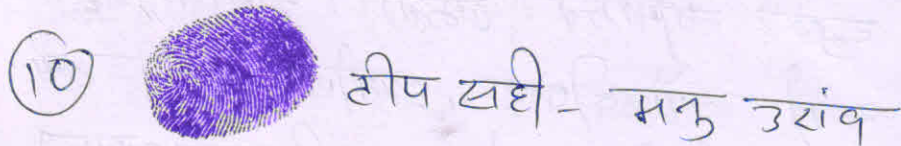 (10) टीप सही - मनु उरांव